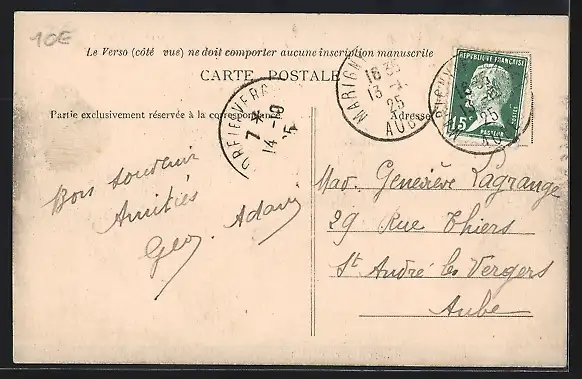 10E
Le Verso (côté vue) ne doit comporter aucune inscription manuscrite
CARTE POSTALE
Partie exclusivement réservée à la correspondance
Adresse
MARIGN
16 35
13 -
25
AUB
7
14 -
RÉPUBLIQUE FRANÇAISE
15c
PASTEUR
POSTES
25
Bon souvenir
Amitiés
Geo. Adam
Mad. Geneviève Lagrange
29 Rue Thiers
St André les Vergers
Aube